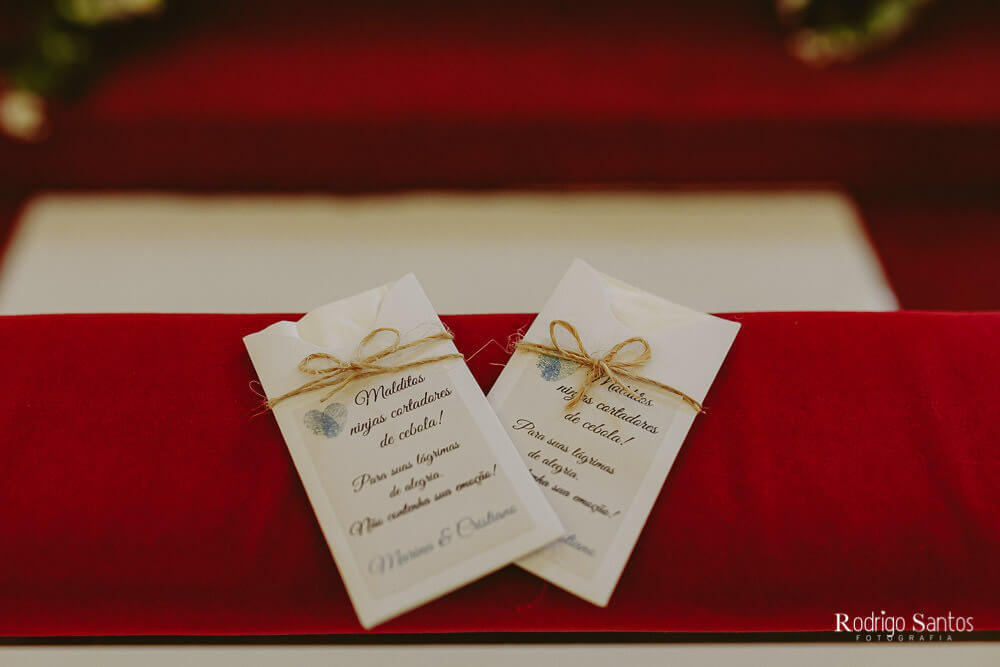 Malditos
ninjas cortadores
de cebola!
Para suas lágrimas
de alegria.
Não contenha sua emoção!
Marina & Cristiano
Malditos
ninjas cortadores
de cebola!
Para suas lágrimas
de alegria.
contenha sua emoção!
Cristiano
Rodrigo Santos
FOTOGRAFIA